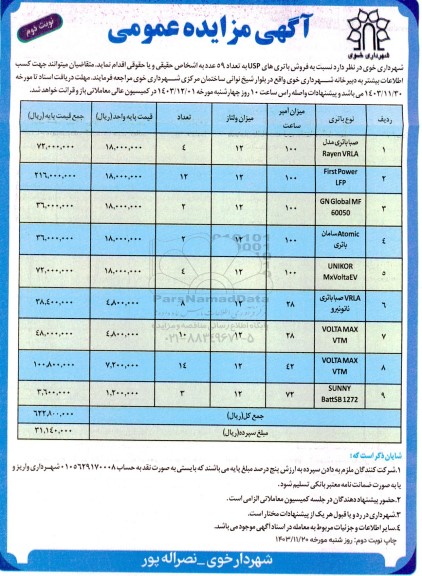 نوبت دوم
آگهی مزایده عمومی
شهرداری خوی
شهرداری خوی در نظر دارد نسبت به فروش باتری های USP به تعداد ۵۹ عدد به اشخاص حقیقی و یا حقوقی اقدام نماید. متقاضیان میتوانند جهت کسب
اطلاعات بیشتر به دبیرخانه شهرداری خوی واقع در بلوار شیخ نوائی ساختمان مرکزی شهرداری خوی مراجعه فرمایند. مهلت دریافت اسناد تا مورخه
۱۴۰۳/۱۱/۳۰ می باشد و پیشنهادات واصله راس ساعت ۱۰ روز چهارشنبه مورخه ۱۴۰۳/۱۲/۰۱ در کمیسیون عالی معاملاتی باز و قرائت خواهد شد.
ردیف نوع باتری میزان آمپر ساعت میزان ولتاژ تعداد قیمت پایه واحد (ریال) جمع قیمت پایه (ریال)
۱ صبا باتری مدل Rayen VRLA ۱۰۰ ۱۲ ۴ ۱۸,۰۰۰,۰۰۰ ۷۲,۰۰۰,۰۰۰
۲ First Power LFP ۱۰۰ ۱۲ ۱۲ ۱۸,۰۰۰,۰۰۰ ۲۱۶,۰۰۰,۰۰۰
۳ GN Global MF 60050 ۱۰۰ ۱۲ ۲ ۱۸,۰۰۰,۰۰۰ ۳۶,۰۰۰,۰۰۰
۴ Atomic سامان باتری ۱۰۰ ۱۲ ۲ ۱۸,۰۰۰,۰۰۰ ۳۶,۰۰۰,۰۰۰
۵ UNIKOR MxVoltaEV ۱۰۰ ۱۲ ۴ ۱۸,۰۰۰,۰۰۰ ۷۲,۰۰۰,۰۰۰
۶ VRLA صبا باتری نانونیرو ۲۸ ۱۲ ۸ ۴,۸۰۰,۰۰۰ ۳۸,۴۰۰,۰۰۰
۷ VOLTA MAX VTM ۲۸ ۱۲ ۱۰ ۴,۸۰۰,۰۰۰ ۴۸,۰۰۰,۰۰۰
۸ VOLTA MAX VTM ۴۲ ۱۲ ۱۴ ۷,۲۰۰,۰۰۰ ۱۰۰,۸۰۰,۰۰۰
۹ SUNNY BattSB 1272 ۷۲ ۱۲ ۳ ۱,۲۰۰,۰۰۰ ۳,۶۰۰,۰۰۰
جمع کل (ریال) ۶۲۲,۸۰۰,۰۰۰
مبلغ سپرده (ریال) ۳۱,۱۴۰,۰۰۰
ParsNamadData
پایگاه اطلاع رسانی مناقصه و مزایده
۰۲۱-۸۸۳۴۹۶۷۰-۵
شایان ذکر است که:
۱.شرکت کنندگان ملزم به دادن سپرده به ارزش پنج درصد مبلغ پایه می باشند که بایستی به صورت نقد به حساب ۰۱۰۵۶۲۹۱۷۰۰۰۸ شهرداری واریز و
یا به صورت ضمانت نامه معتبر بانکی تسلیم شود.
۲.حضور پیشنهاد دهندگان در جلسه کمیسیون معاملاتی الزامی است.
۳.شهرداری در رد و یا قبول هر یک از پیشنهادات مختار است.
۴.سایر اطلاعات و جزئیات مربوط به معامله در اسناد آگهی موجود می باشد.
چاپ نوبت دوم: روز شنبه مورخه ۱۴۰۳/۱۱/۲۰
شهردار خوی _ نصراله پور